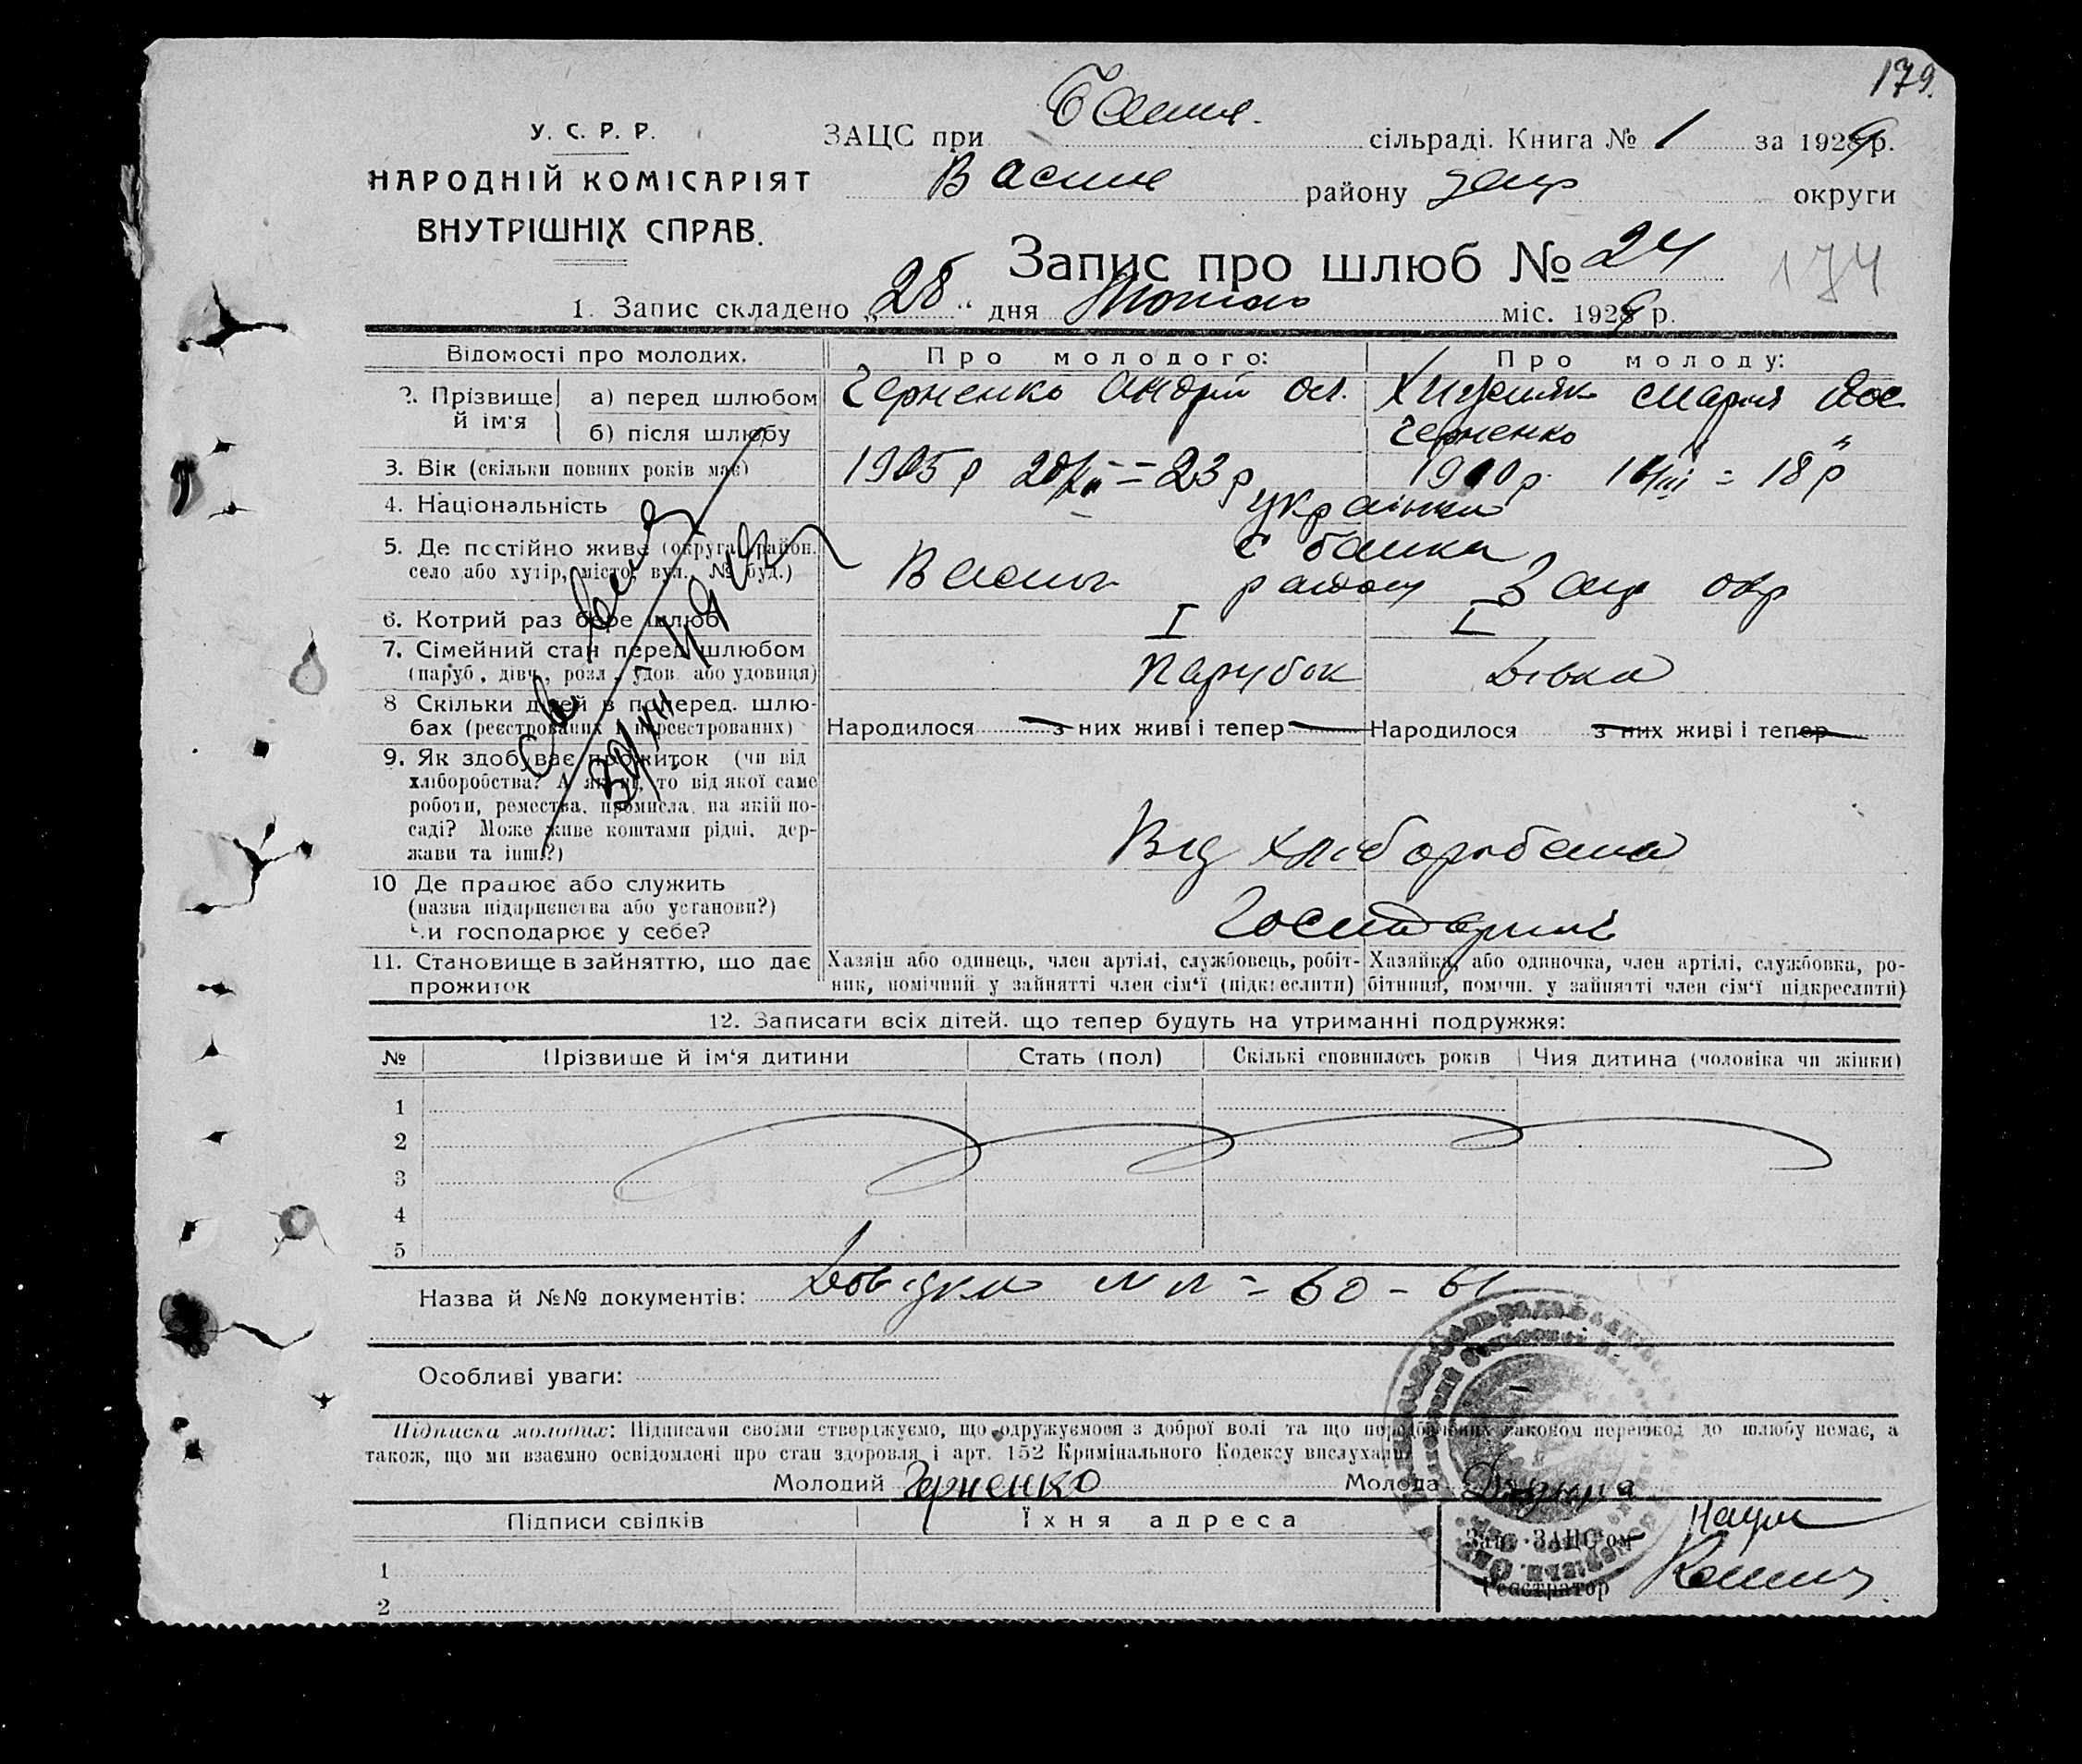 179.
У. С. Р. Р.
НАРОДНІЙ КОМІСАРІЯТ
ВНУТРІШНІХ СПРАВ.
ЗАЦС при сільраді. Книга № 1 за 1929 р.
Васил району Запр округи
Запис про шлюб № 24
174
1. Запис складено „28“ дня міс. 1929 р.
Відомості про молодих. Про молодого: Про молоду:
2. Прізвище й ім'я а) перед шлюбом Черненко Андрій Марія
б) після шлюбу Черненко "
3. Вік (скільки повних років має) 1905 р = 23 р 1910 р. = 18 р
4. Національність українци
5. Де постійно живе (округа, район, село або хутір, місто, вул. № буд.) с Балка
Васил району Запр окр
6. Котрий раз бере шлюб I I
7. Сімейний стан перед шлюбом (паруб., дівч., розл., удов. або удовиця) парубок дівка
8 Скільки дітей в поперед. шлюбах (реєстрованих і нереєстрованих) Народилося з них живі і тепер Народилося з них живі і тепер
9. Як здобуває прожиток (чи від
хліборобства? А як ні, то від якої саме
роботи, ремества, промисла, на якій по-
саді? Може живе коштами рідні, дер-
жави та інш.?)
Від хліборобства
10 Де працює або служить
(назва підприємства або установи?)
Чи господарює у себе?
11. Становище в зайняттю, що дає прожиток
Хазяін або одинець, член артілі, службовець, робіт-
ник, помічний у зайнятті член сім'ї (підкреслити)
Хазяйка, або одиночка, член артілі, службовка, ро-
бітниця, помічн. у зайнятті член сім'ї підкреслити)
12. Записати всіх дітей, що тепер будуть на утриманні подружжя:
№ Прізвище й ім'я дитини Стать (пол) Скількі сповнилось років Чия дитина (чоловіка чи жінки)
1
2
3
4
5
Назва й №№ документів: Довідки № № = 60 - 61
Особливі уваги:
Підписка молодих: Підписами своїми стверджуємо, що одружуємося з доброї волі та що передбачених законом перешкод до шлюбу немає, а
також, що ми взаємно освідомлені про стан здоровля і арт. 152 Кримінального Кодексу вислухали.
Молодий Черненко Молода
Підписи свідків Їхня адреса
Зав. ЗАЦС'ом
1
Реєстратор
2